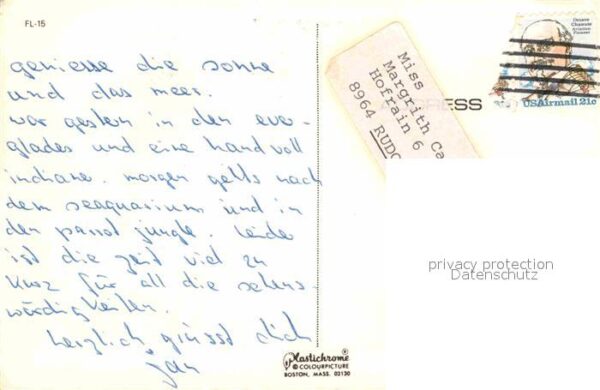 FL-15
geniesse die sonne
und das meer.
war gestern in den ever-
glades und eine hand voll
indiane. morgen gehts nach
dem seaquarium und in
den parrot jungle. leider
ist die zeit viel zu
kurz für all die sehens-
würdigkeiten.
herzlich grüsst dich
Jan
Plastichrome®
COLOURPICTURE
BOSTON, MASS. 02130
Miss
Margrith Ca
Hofrain 6
8964 RUDO
RESS
Octave
Chanute
Aviation
Pioneer
USAirmail 21c
privacy protection
Datenschutz